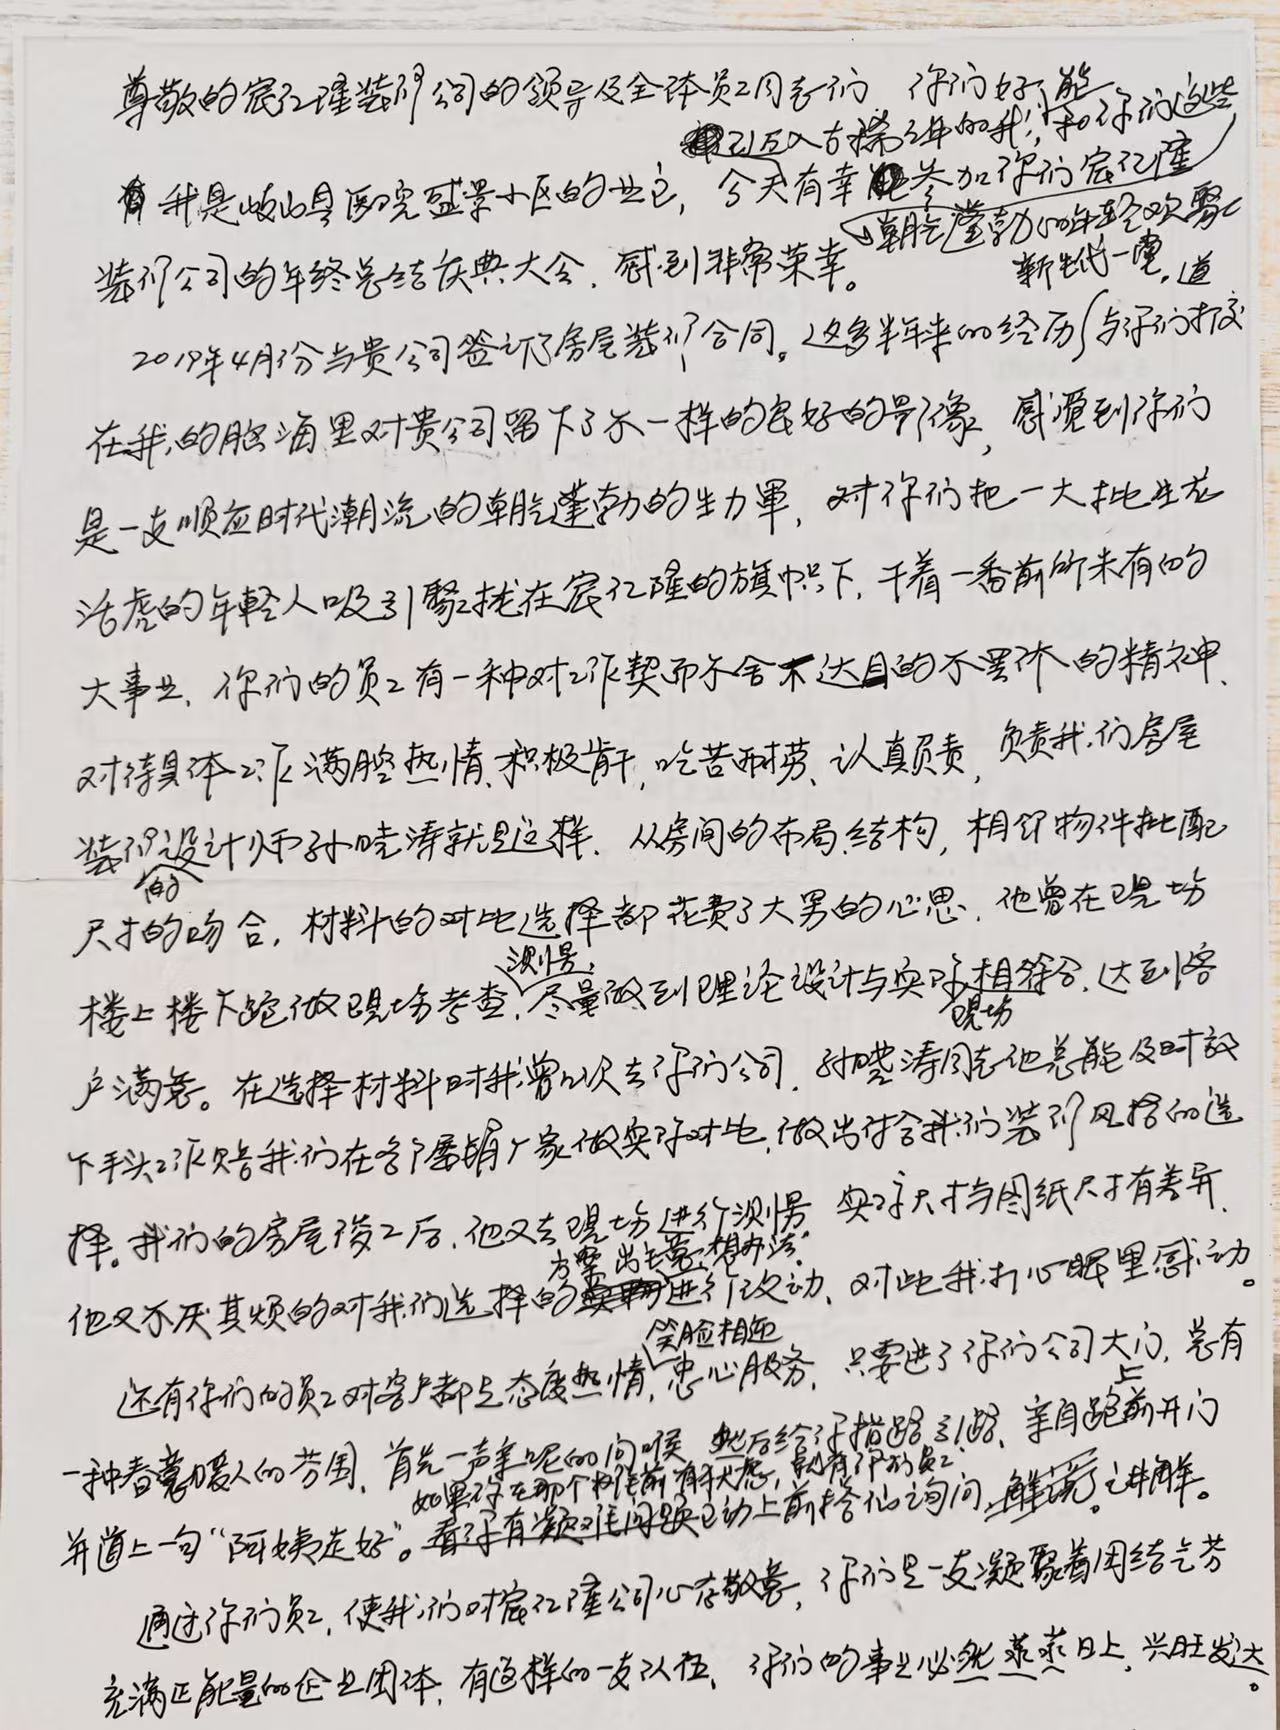 尊敬的宸亿隆装修公司的领导及全体员工同志们 你们好,能
已迈入古稀之年的我,和你们这些
我是岐山县医院盛景小区的业主,今天有幸参加你们宸亿隆
朝气蓬勃的年轻 欢聚
新生代一堂,道
装修公司的年终总结庆典大会,感到非常荣幸。
2019年4月份与贵公司签订了房屋装修合同。这多半年来的经历与你们打交
在我的脑海里对贵公司留下了不一样的良好的影像,感觉到你们
是一支顺应时代潮流的朝气蓬勃的生力軍,对你们把一大批生龙
活虎的年轻人吸引聚拢在宸亿隆的旗帜下,干着一番前所未有的
大事业,你们的员工有一种对工作契而不舍不达目的不罢休的精神,
对待具体工作满腔热情、积极肯干,吃苦耐劳、认真负责,负责我们房屋
装修设计师孙晓涛就是这样,从房间的布局结构,相邻物件批配
的
尺寸的吻合,材料的对比选择都花费了大男的心思,他曾在现场
测量,
楼上楼下跑做现场考查,尽量做到理论设计与实际相符合,达到客
现场
户满意。在选择材料时我曾几次去你们公司,孙晓涛同志他总能及时放
下手头工作陪我们在各个展销厂家做实际对比,做出符合我们装修风格的选
择。我们的房屋竣工后,他又去现场进行测量 实际尺寸与图纸尺寸有差异,
方案 出主意 想办法
他又不厌其烦的对我们选择的进行改动,对此我打心眼里感动。
笑脸相迎
还有你们的员工对客户都是态度热情,忠心服务,只要进了你们公司大门,总有
上
一种春意暖人的芬围,首先一声亲昵的问候,然后给你指路引路,亲自跑前开门
如果你在那个 前有 虑,就有 的员工
并道上一句“阿姨走好”。看你有凝难问题主动上前 询问 讲解。
通过你们员工,使我们对宸亿隆公司心存敬意,你们是一支凝聚着团结气芬
充满正能量的企业团体,有这样的一支队伍,你们的事业必然蒸蒸日上,兴旺发达。